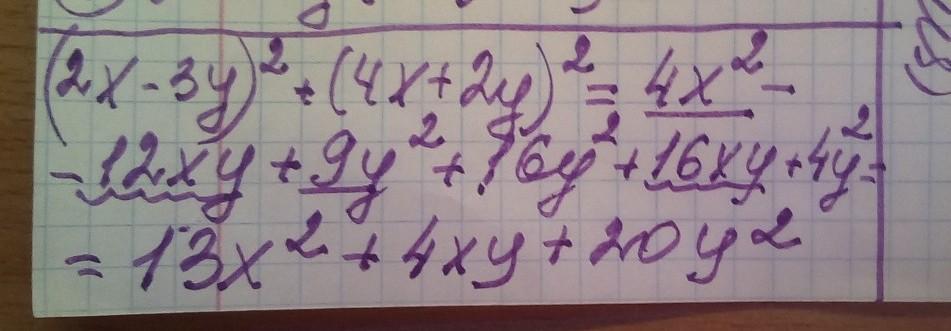 (2x-3y)² + (4x+2y)² = 4x² -
- 12xy + 9y² + 16y² + 16xy + 4y² =
= 13x² + 4xy + 20y²